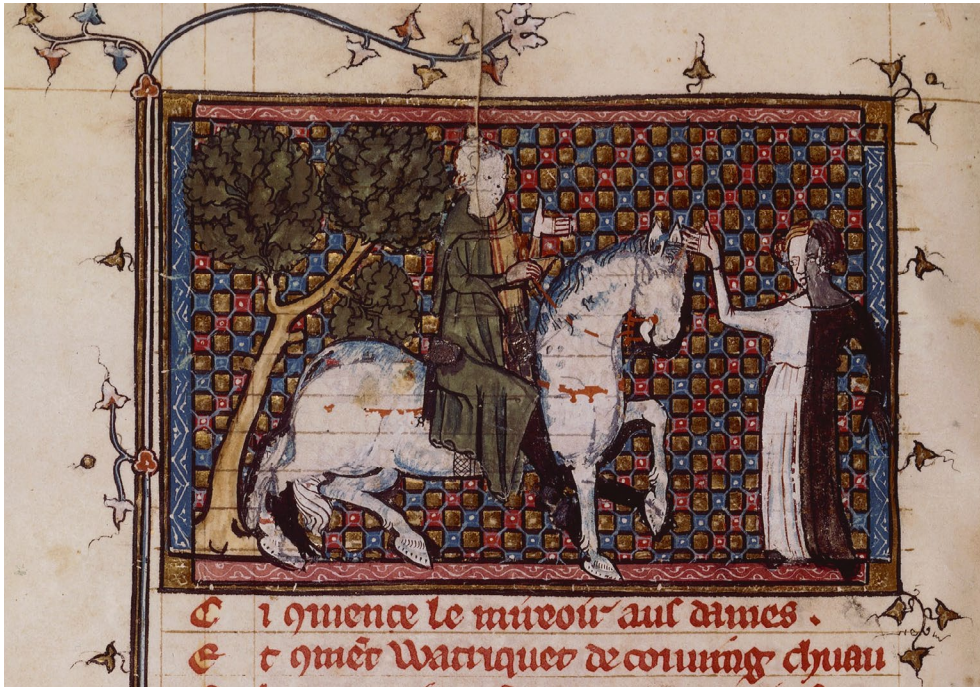 Ci qmence le mireoir aus dames .
Et qmẽt Watriquet de couuing cheuau